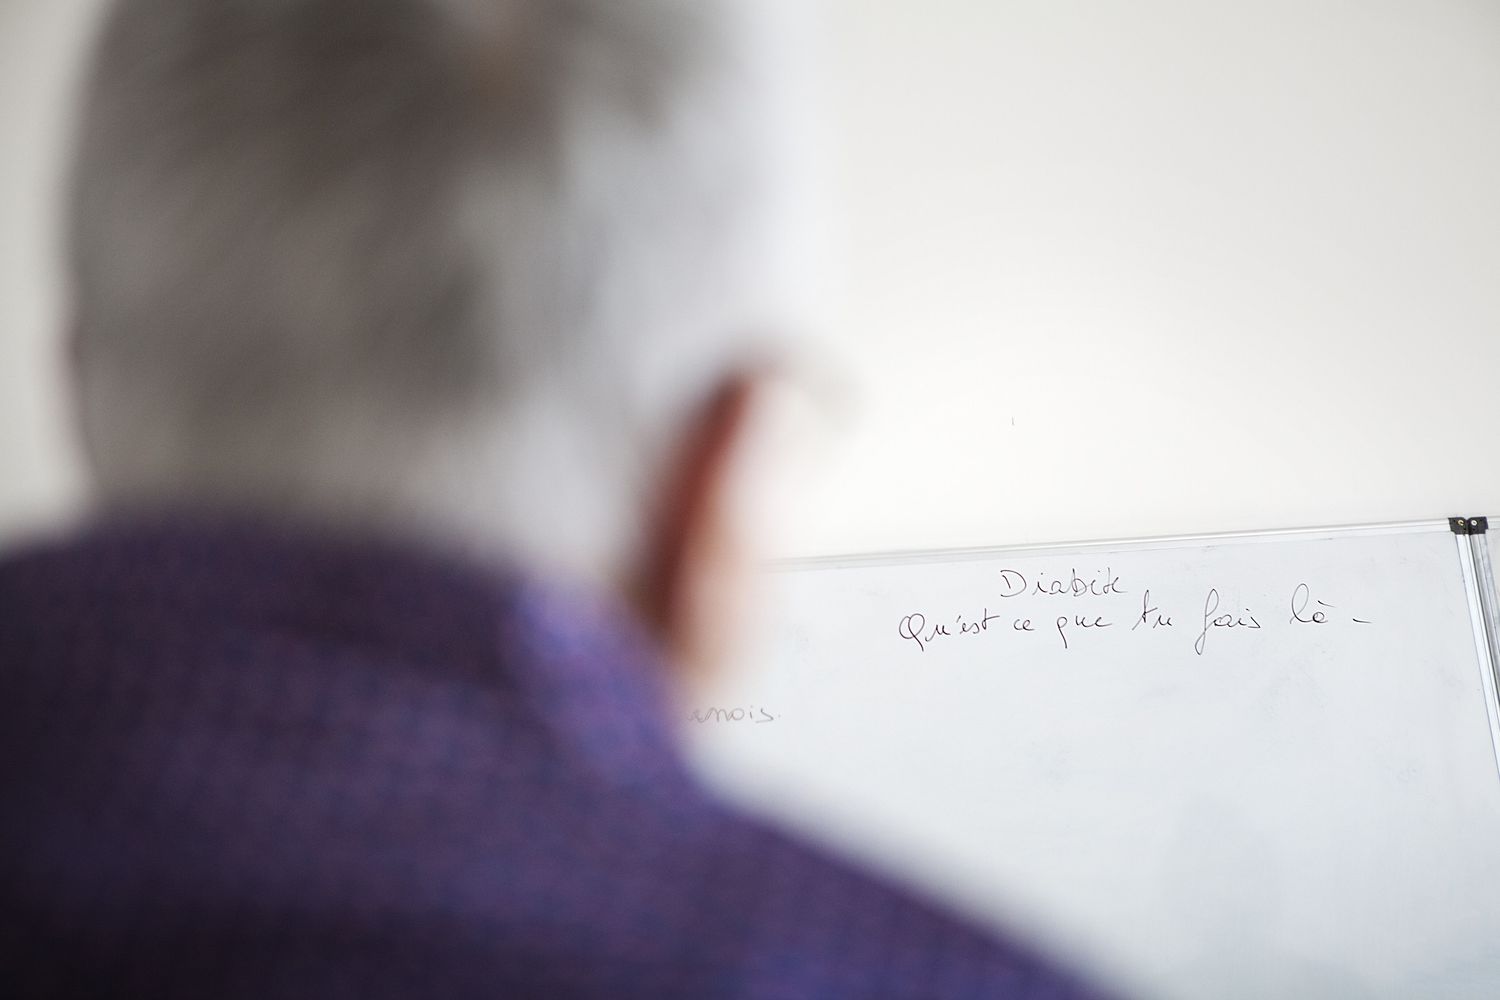 Diabète
Qu'est ce que tu fais là -